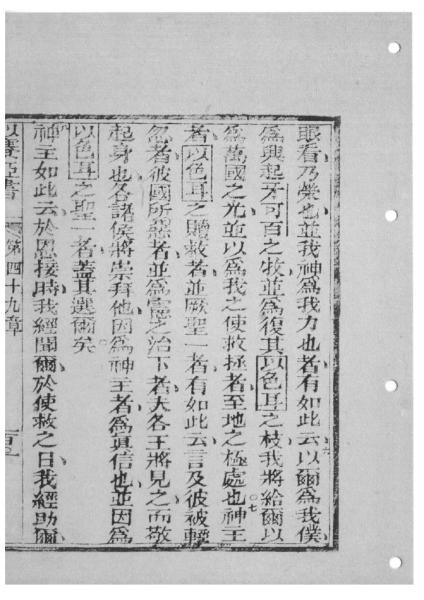 眼看乃榮也並我神爲我力也者有如此云以爾爲我僕
六
爲興起牙可百之牧並爲復其以色耳之枝我將給爾以
爲萬國之光並以爲我之使救拯者至地之極處也神主
七
者以色耳之贖救者並厥聖一者有如此云言及彼被輕
忽者彼國所惡者並爲憲之治下者大各王將見之而敬
起身也各諸侯將崇拜他因爲神主者爲眞信也並因爲
以色耳之聖一者蓋其選爾矣
神主如此云於恩接時我經聞爾於使救之日我經助爾
以賽亞書 第四十九章